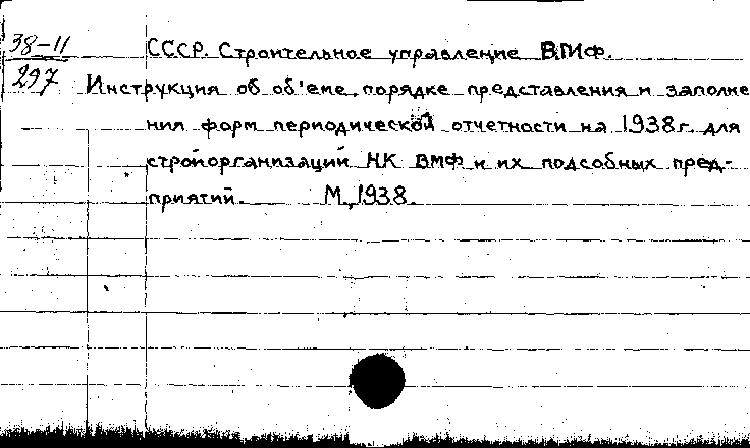 38-11
297
СССР. Строительное управление ВМФ.
Инструкция об об'еме, порядке представления и заполне
ния форм периодической отчетности на 1938 г. для
стройорганизаций НК ВМФ и их подсобных пред-
приятий. М., 1938.